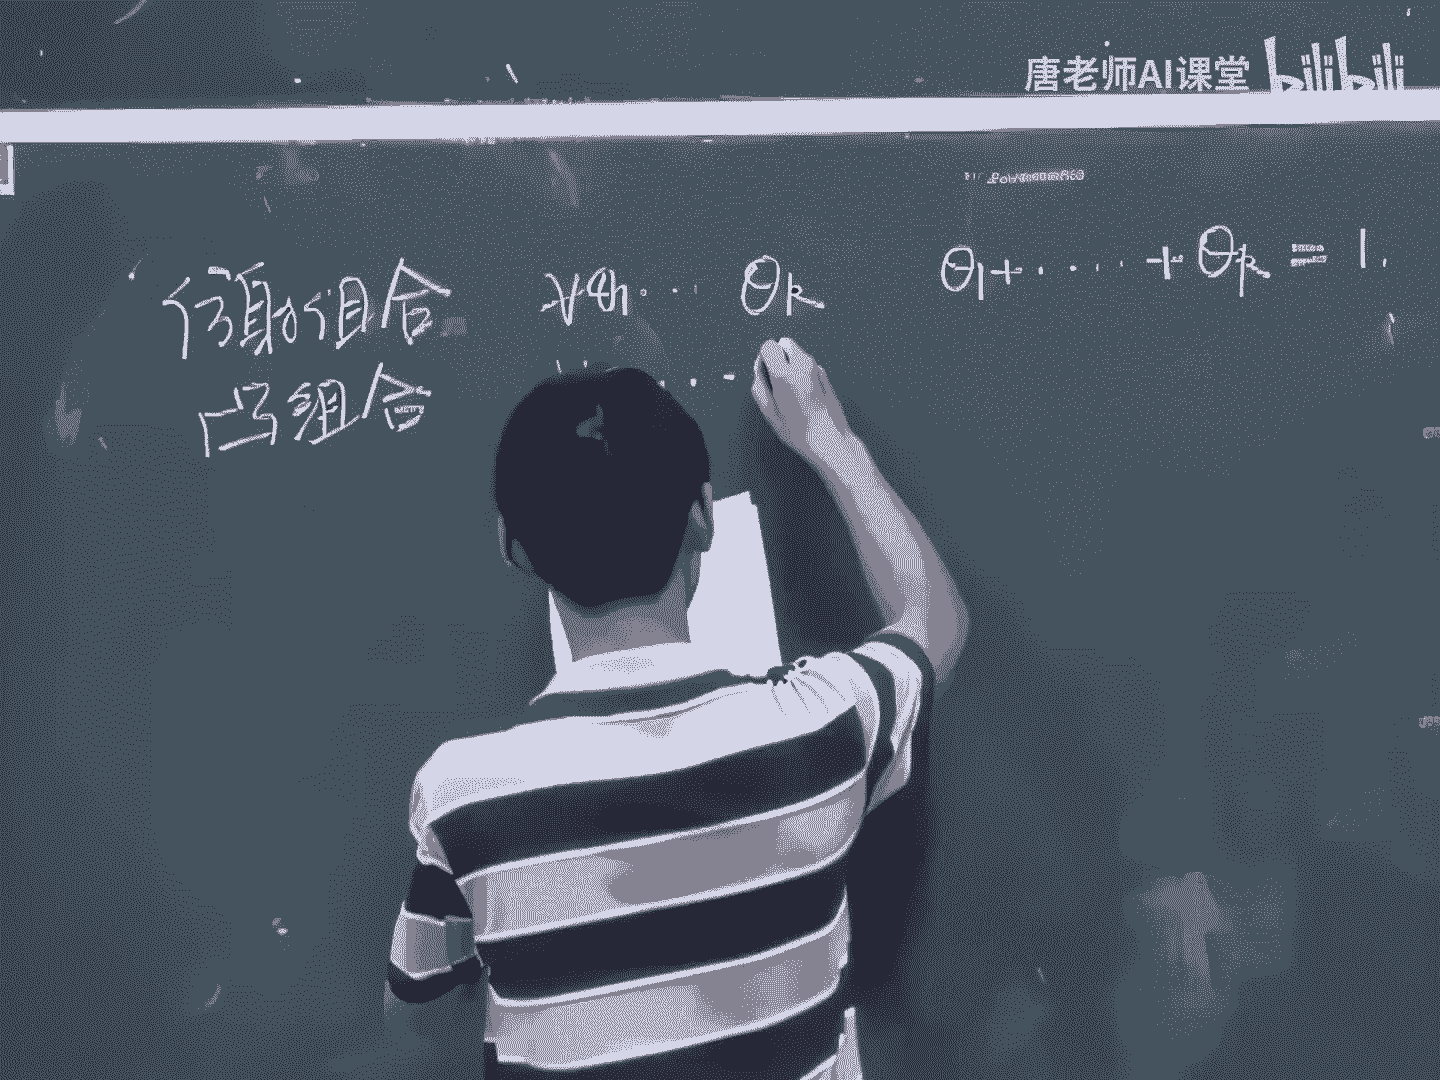 唐老师AI课堂 bilibili
仿射组合 ∀θ₁ ··· θₖ θ₁+ ···· +θₖ = 1.
凸组合